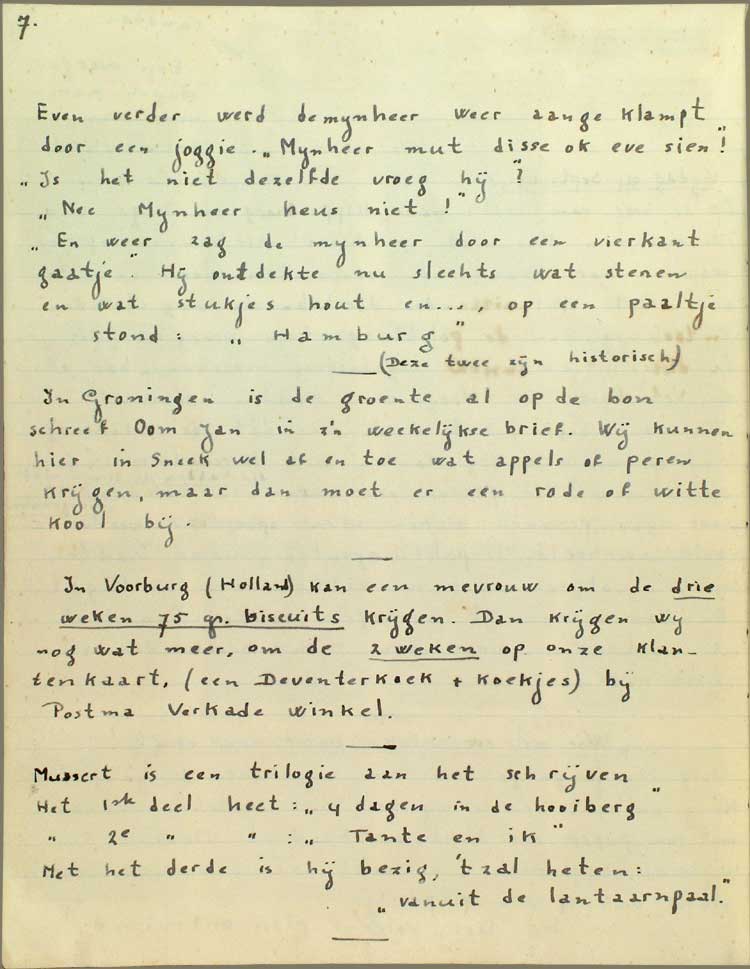 7.
Even verder werd demynheer weer aangeklampt
door een joggie. „Mynheer mut disse ok eve sien"!
„Is het niet dezelfde vroeg hij"?
„Nee Mynheer heus niet!"
„En weer zag de mynheer door een vierkant
gaatje". Hij ontdekte nu slechts wat stenen
en wat stukjes hout en..., op een paaltje
stond: „Hamburg"
(Deze twee zijn historisch)
In Groningen is de groente al op de bon
schreef Oom Jan in z'n weekelijkse brief. Wij kunnen
hier in Sneek wel af en toe wat appels of peren
krijgen, maar dan moet er een rode of witte
kool bij.
In Voorburg (Holland) kan een mevrouw om de drie
weken 75 gr. biscuits krijgen. Dan krijgen wy
nog wat meer, om de 2 weken op onze klan-
tenkaart, (een Deventerkoek + koekjes) bij
Postma Verkade winkel.
Mussert is een trilogie aan het schrijven
Het 1ste deel heet: „4 dagen in de hooiberg"
" 2e " " : „Tante en ik"
Met het derde is hij bezig, 't zal heten:
„vanuit de lantaarnpaal."